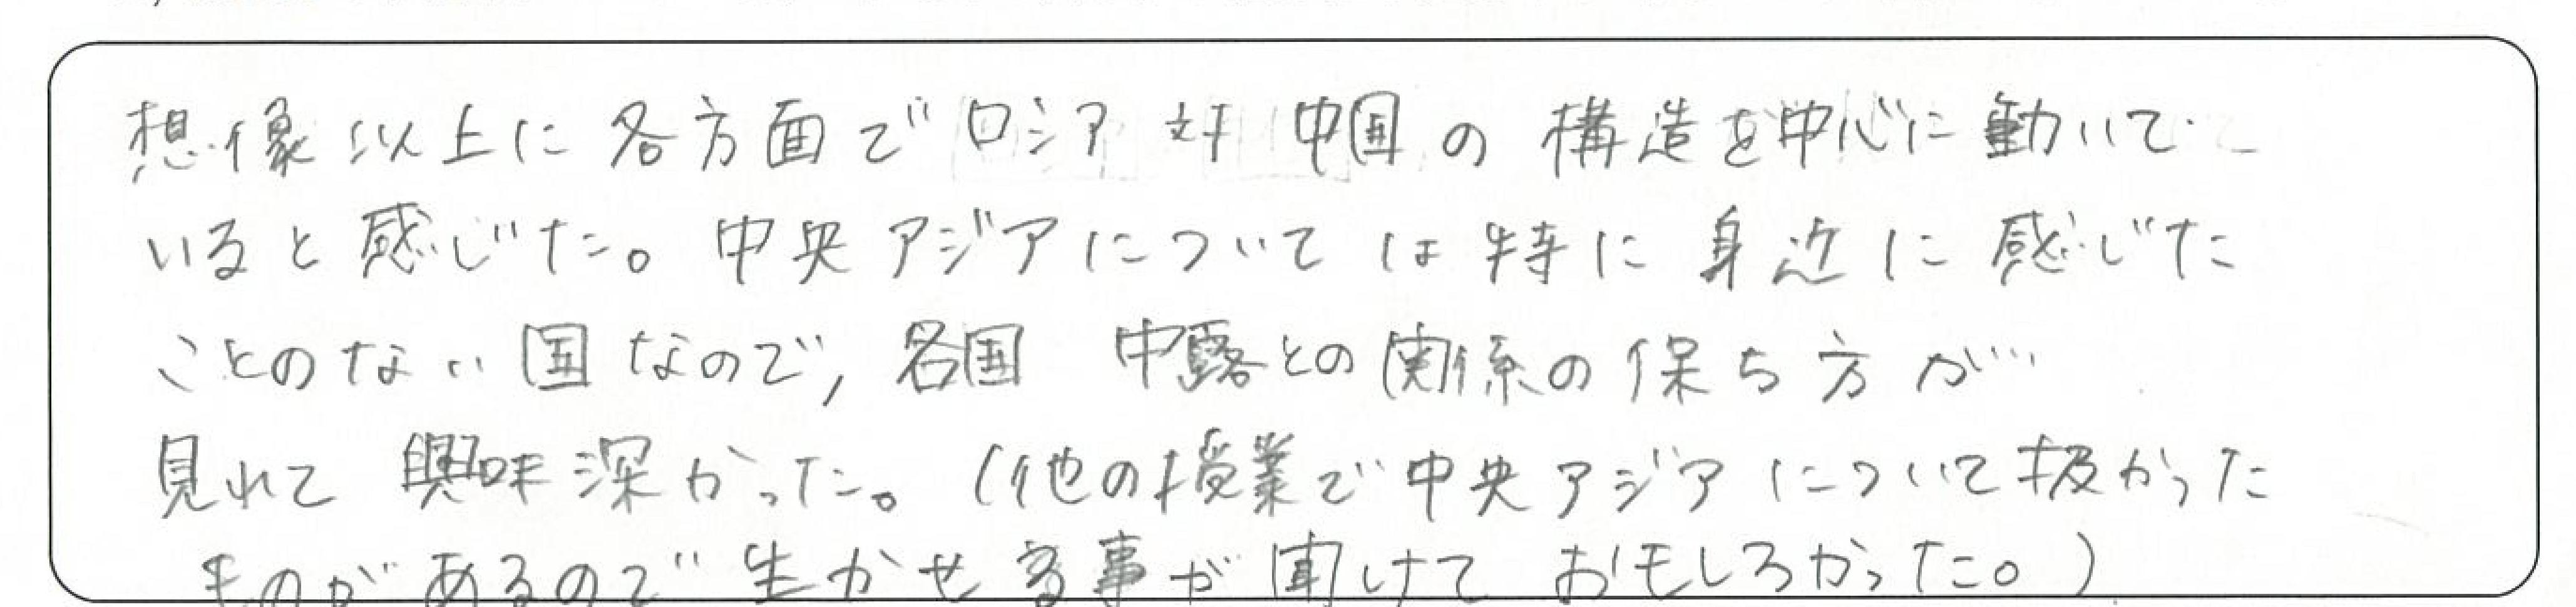 想像以上に各方面でロシア対中国の構造を中心に動いて
いると感じた。中央アジアについては特に身近に感じた
ことのない国なので、各国 中露との関係の保ち方が
見れて興味深かった。(他の授業で中央アジアについて扱かった
ものがあるので生かせる事が聞けておもしろかった。)